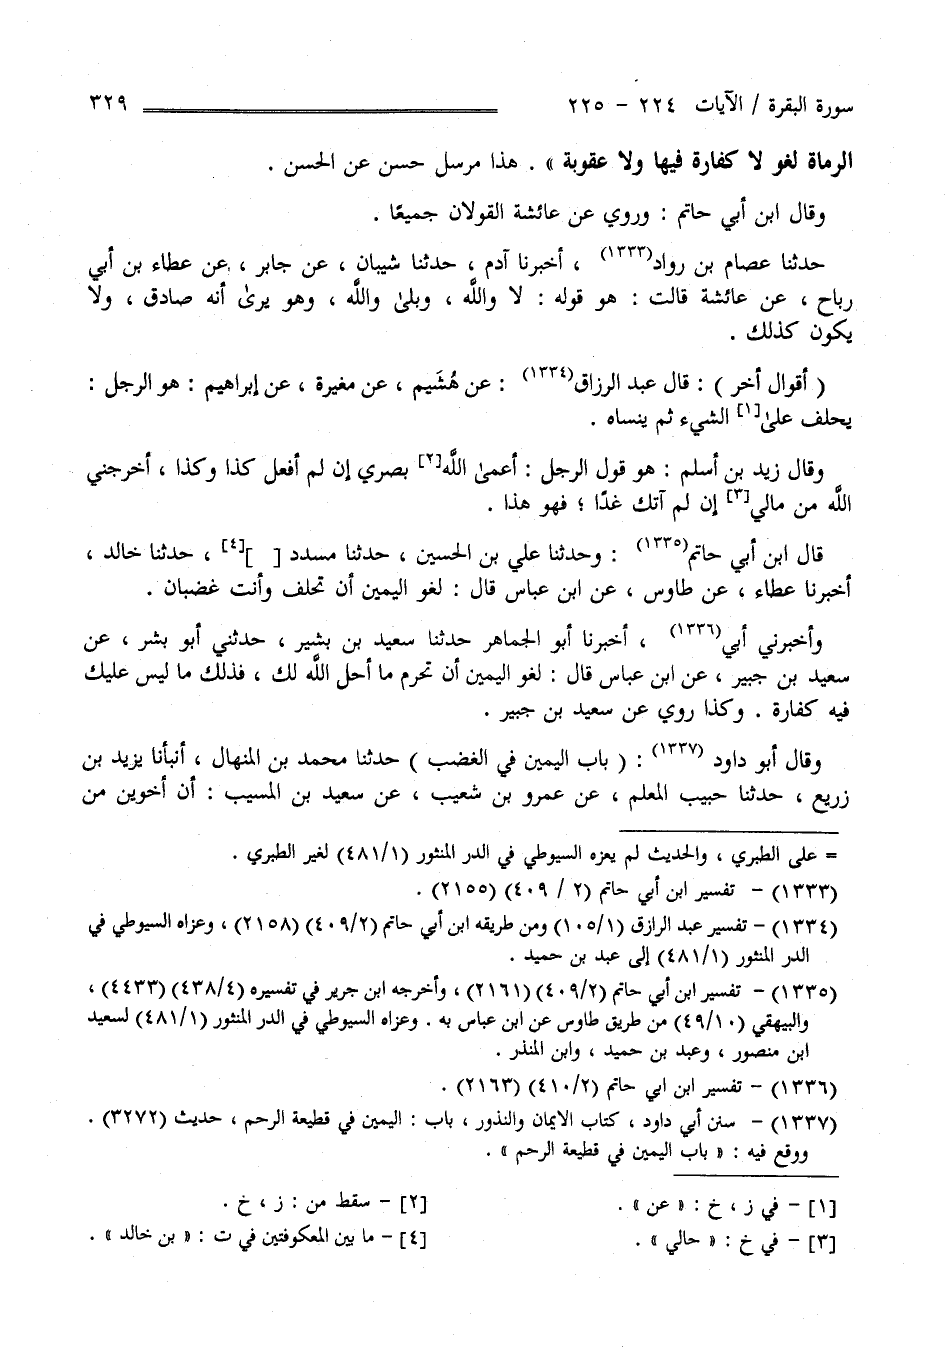 سورة البقرة / الآيات ٢٢٤ - ٢٢٥ ٣٢٩
الرماة لغو لا كفارة فيها ولا عقوبة » . هذا مرسل حسن عن الحسن .
وقال ابن أبي حاتم : وروي عن عائشة القولان جميعًا .
حدثنا عصام بن رواد(١٣٣٣) ، أخبرنا آدم ، حدثنا شيبان ، عن جابر ، عن عطاء بن أبي
رباح ، عن عائشة قالت : هو قوله : لا واللَّه ، وبلىٰ واللَّه ، وهو يرىٰ أنه صادق ، ولا
يكون كذلك .
( أقوال أخر ) : قال عبد الرزاق(١٣٣٤) : عن هُشَيم ، عن مغيرة ، عن إبراهيم : هو الرجل :
يحلف علىٰ[١] الشيء ثم ينساه .
وقال زيد بن أسلم : هو قول الرجل : أعمىٰ اللَّه[٢] بصري إن لم أفعل كذا وكذا ، أخرجني
اللَّه من مالي[٣] إن لم آتك غدًا ؛ فهو هذا .
قال ابن أبي حاتم(١٣٣٥) : وحدثنا علي بن الحسين ، حدثنا مسدد [ ][٤] ، حدثنا خالد ،
أخبرنا عطاء ، عن طاوس ، عن ابن عباس قال : لغو اليمين أن تحلف وأنت غضبان .
وأخبرني أبي(١٣٣٦) ، أخبرنا أبو الجماهر حدثنا سعيد بن بشير ، حدثني أبو بشر ، عن
سعيد بن جبير ، عن ابن عباس قال : لغو اليمين أن تحرم ما أحل اللَّه لك ، فذلك ما ليس عليك
فيه كفارة . وكذا روي عن سعيد بن جبير .
وقال أبو داود (١٣٣٧) : ( باب اليمين في الغضب ) حدثنا محمد بن المنهال ، أنبأنا يزيد بن
زريع ، حدثنا حبيب المعلم ، عن عمرو بن شعيب ، عن سعيد بن المسيب : أن أخوين من
= على الطبري ، والحديث لم يعزه السيوطي في الدر المنثور (٤٨١/١) لغير الطبري .
(١٣٣٣) - تفسير ابن أبي حاتم (٢ / ٤٠٩) (٢١٥٥) .
(١٣٣٤) - تفسير عبد الرازق (١٠٥/١) ومن طريقه ابن أبي حاتم (٤٠٩/٢) (٢١٥٨) ، وعزاه السيوطي في
الدر المنثور (٤٨١/١) إلى عبد بن حميد .
(١٣٣٥) - تفسير ابن أبي حاتم (٤٠٩/٢) (٢١٦١) ، وأخرجه ابن جرير في تفسيره (٤٣٨/٤) (٤٤٣٣) ،
والبيهقي (٤٩/١٠) من طريق طاوس عن ابن عباس به . وعزاه السيوطي في الدر المنثور (٤٨١/١) لسعيد
ابن منصور ، وعبد بن حميد ، وابن المنذر .
(١٣٣٦) - تفسير ابن ابي حاتم (٤١٠/٢) (٢١٦٣) .
(١٣٣٧) - سنن أبي داود ، كتاب الايمان والنذور ، باب : اليمين في قطيعة الرحم ، حديث (٣٢٧٢) .
ووقع فيه : « باب اليمين في قطيعة الرحم » .
[١] - في ز ، خ : « عن » . [٢] - سقط من : ز ، خ .
[٣] - في خ : « حالي » . [٤] - ما بين المعكوفتين في ت : « بن خالد » .